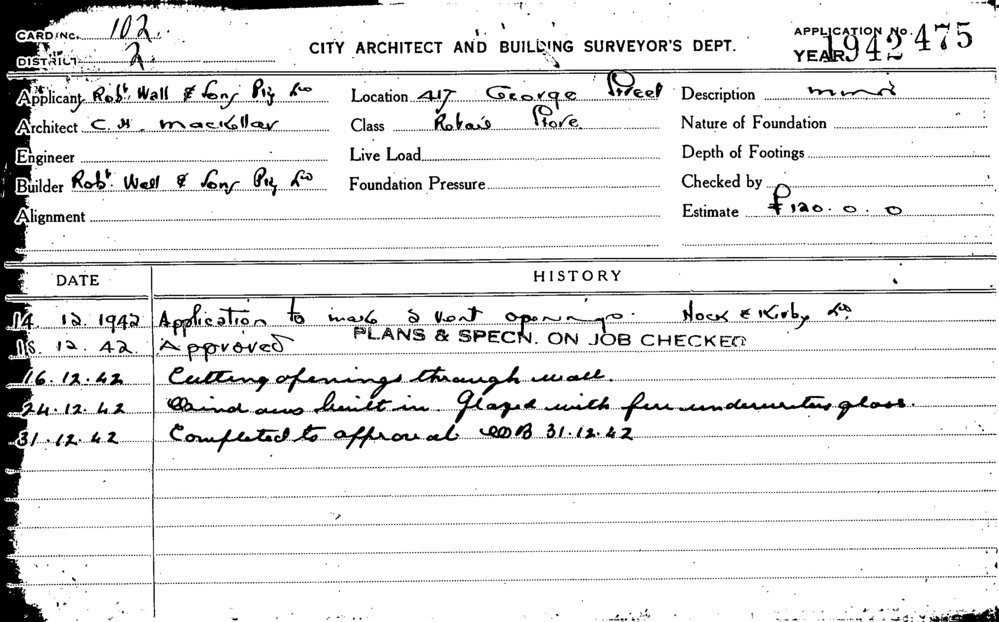 CARD NO. 102.
DISTRICT 2
CITY ARCHITECT AND BUILDING SURVEYOR'S DEPT.
APPLICATION No. 475
YEAR 1942
Applicant Robt. Wall & Sons Pty Ld
Location 417 George Street
Description minor
Architect C. H. Mackellar
Class Retail Store
Nature of Foundation
Engineer
Live Load
Depth of Footings
Builder Robt. Wall & Sons Pty Ld
Foundation Pressure
Checked by
Alignment
Estimate £120. 0. 0
DATE HISTORY
14 12. 1942 Application to make 2 vent openings. Nock & Kirby Ld.
PLANS & SPECN. ON JOB CHECKED
12. 42 Approved
16. 12. 42 Cutting openings through wall.
24. 12. 42 Windows built in. Glazed with fire underwriters glass.
31. 12. 42 Completed to approval 31. 12. 42